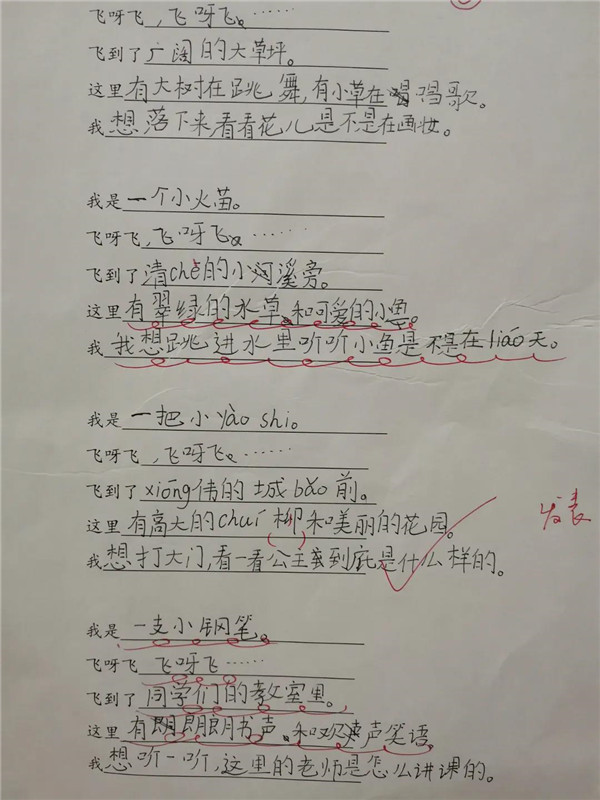 飞呀飞，飞呀飞。
飞到了广阔的大草坪。
这里有大树在跳舞，有小草在唱歌。
我想落下来，看看花儿是不是在画妆。
我是一个小火苗。
飞呀飞，飞呀飞。……
飞到了清chè的小河溪旁。
这里有翠绿的水草、和可爱的小鱼。
我我想跳进水里听听小鱼是不是在liáo天。
我是一把小yào shi。
飞呀飞，飞呀飞、……
飞到了xióng伟的城bǎo前。
这里有高大的chuí柳和美丽的花园。
我想打大门，看一看公主到底是什么样的。
发表
我是一支小钢笔。
飞呀飞 飞呀飞……
飞到了同学们的教室里。
这里有朗朗书声、和欢声笑语。
我想听一听，这里的老师是怎么讲课的。